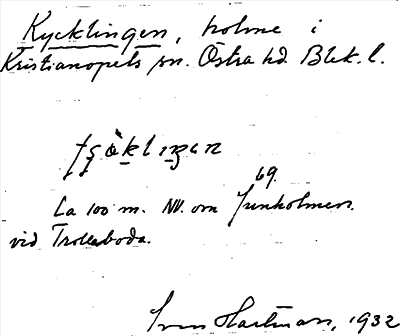 Kycklingen, holme i
Kristianopels sn. Östra hd. Blek. l.
69.
Ca 100 m. NV. om Junholmen
vid Trollaboda.
Sven Hartman, 1932